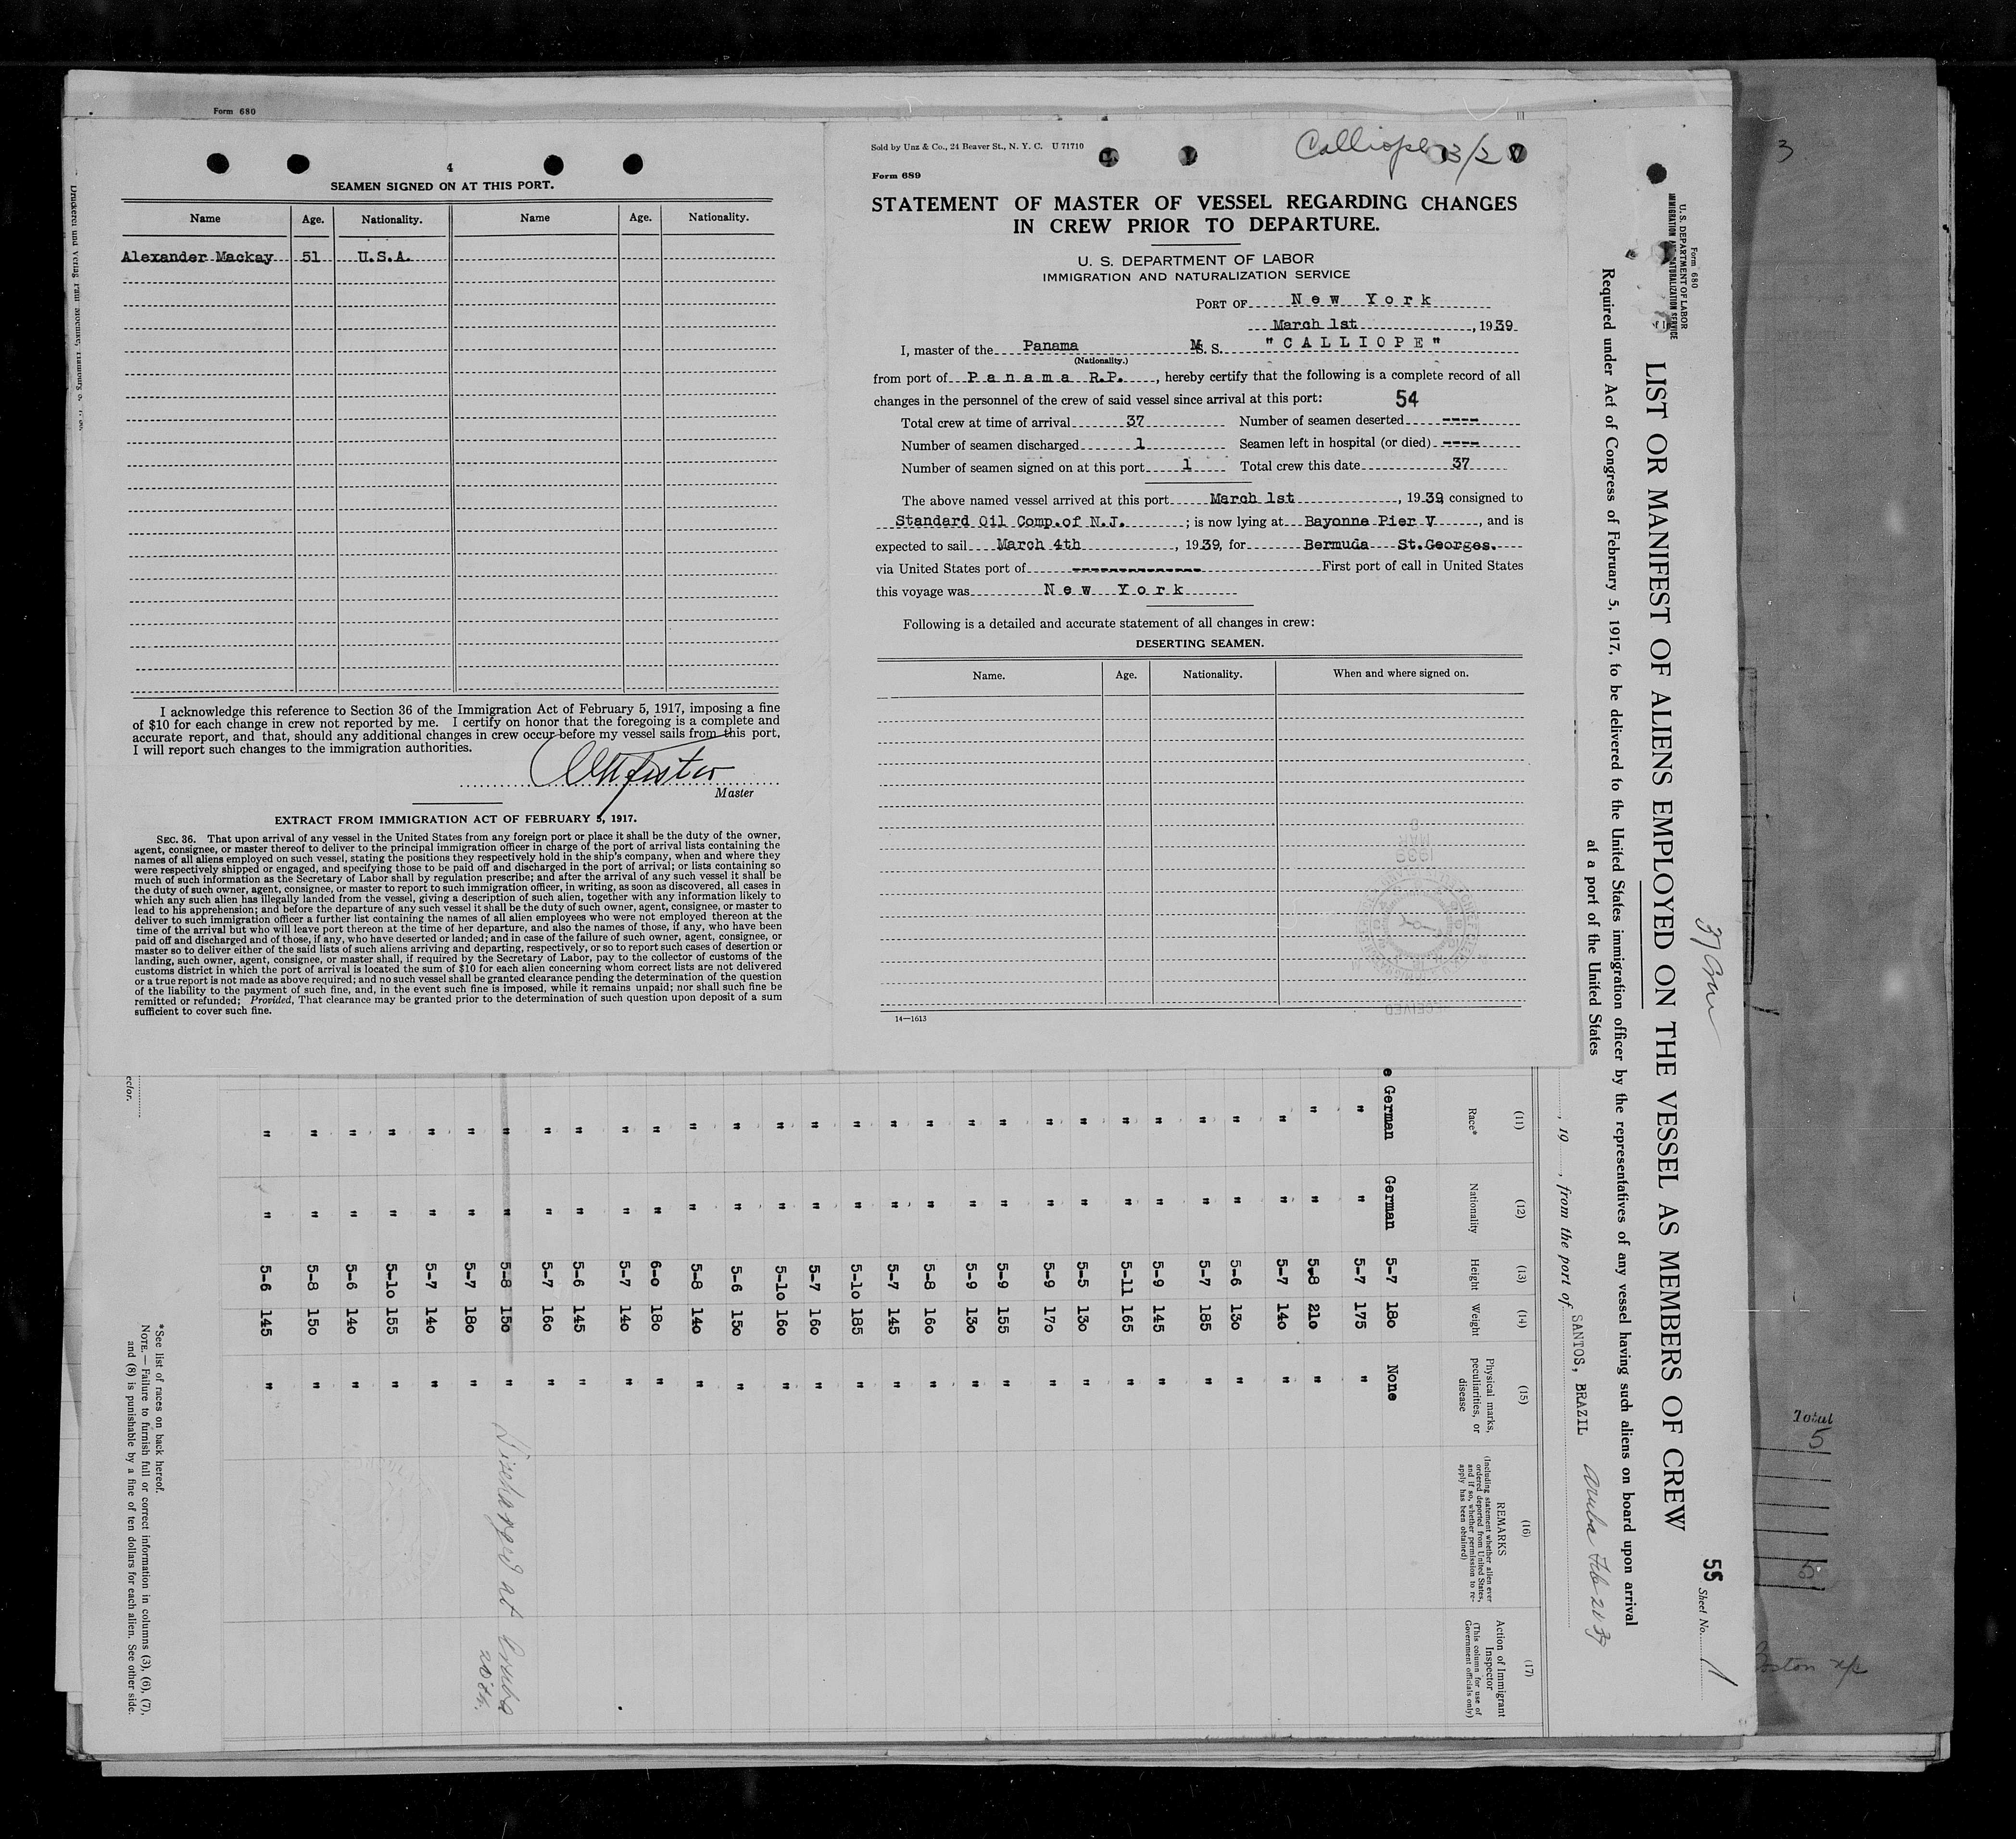 Form 680
4
SEAMEN SIGNED ON AT THIS PORT.
Name Age. Nationality. Name Age. Nationality.
Alexander Mackay 51 U.S.A.
I acknowledge this reference to Section 36 of the Immigration Act of February 5, 1917, imposing a fine
of $10 for each change in crew not reported by me. I certify on honor that the foregoing is a complete and
accurate report, and that, should any additional changes in crew occur before my vessel sails from this port,
I will report such changes to the immigration authorities.
Master
EXTRACT FROM IMMIGRATION ACT OF FEBRUARY 5, 1917.
SEC. 36. That upon arrival of any vessel in the United States from any foreign port or place it shall be the duty of the owner,
agent, consignee, or master thereof to deliver to the principal immigration officer in charge of the port of arrival lists containing the
names of all aliens employed on such vessel, stating the positions they respectively hold in the ship's company, when and where they
were respectively shipped or engaged, and specifying those to be paid off and discharged in the port of arrival; or lists containing so
much of such information as the Secretary of Labor shall by regulation prescribe; and after the arrival of any such vessel it shall be
the duty of such owner, agent, consignee, or master to report to such immigration officer, in writing, as soon as discovered, all cases in
which any such alien has illegally landed from the vessel, giving a description of such alien, together with any information likely to
lead to his apprehension; and before the departure of any such vessel it shall be the duty of such owner, agent, consignee, or master to
deliver to such immigration officer a further list containing the names of all alien employees who were not employed thereon at the
time of the arrival but who will leave port thereon at the time of her departure, and also the names of those, if any, who have been
paid off and discharged and of those, if any, who have deserted or landed; and in case of the failure of such owner, agent, consignee, or
master so to deliver either of the said lists of such aliens arriving and departing, respectively, or so to report such cases of desertion or
landing, such owner, agent, consignee, or master shall, if required by the Secretary of Labor, pay to the collector of customs of the
customs district in which the port of arrival is located the sum of $10 for each alien concerning whom correct lists are not delivered
or a true report is not made as above required; and no such vessel shall be granted clearance pending the determination of the question
of the liability to the payment of such fine, and, in the event such fine is imposed, while it remains unpaid; nor shall such fine be
remitted or refunded; Provided, That clearance may be granted prior to the determination of such question upon deposit of a sum
sufficient to cover such fine.
Sold by Unz & Co., 24 Beaver St., N. Y. C. U 71710
Calliope 3/2
Form 689
STATEMENT OF MASTER OF VESSEL REGARDING CHANGES
IN CREW PRIOR TO DEPARTURE.
U. S. DEPARTMENT OF LABOR
IMMIGRATION AND NATURALIZATION SERVICE
PORT OF New York
March 1st, 1939
I, master of the Panama M.S. "CALLIOPE"
(Nationality.)
from port of Panama R.P., hereby certify that the following is a complete record of all
changes in the personnel of the crew of said vessel since arrival at this port: 54
Total crew at time of arrival 37 Number of seamen deserted ----
Number of seamen discharged 1 Seamen left in hospital (or died) ----
Number of seamen signed on at this port 1 Total crew this date 37
The above named vessel arrived at this port March 1st, 1939, consigned to
Standard Oil Comp.of N.J.; is now lying at Bayonne Pier V, and is
expected to sail March 4th, 1939, for Bermuda St.Georges.
via United States port of -------------- First port of call in United States
this voyage was New York
Following is a detailed and accurate statement of all changes in crew:
DESERTING SEAMEN.
Name. Age. Nationality. When and where signed on.
14—1613
Form 680
U.S. DEPARTMENT OF LABOR
IMMIGRATION AND NATURALIZATION SERVICE
37 Crew
55
Sheet No. 1
LIST OR MANIFEST OF ALIENS EMPLOYED ON THE VESSEL AS MEMBERS OF CREW
Required under Act of Congress of February 5, 1917, to be delivered to the United States immigration officer by the representatives of any vessel having such aliens on board upon arrival
at a port of the United States
, 19 , from the port of SANTOS, BRAZIL Aruba Feb 21 39
(11) (12) (13) (14) (15) (16) (17)
Race* Nationality Height Weight Physical marks, peculiarities, or disease REMARKS (Including statement whether alien ever ordered deported from United States, and if so, whether permission to reapply has been obtained) Action of Immigrant Inspector (This column for use of Government officials only)
e German German 5-7 180 None
" " 5-7 175 "
" " 5-8 210 "
" " 5-7 140 "
" " 5-6 130 "
" " 5-7 185 "
" " 5-9 145 "
" " 5-11 165 "
" " 5-5 130 "
" " 5-9 170 "
" " 5-9 155 "
" " 5-9 130 "
" " 5-8 160 "
" " 5-7 145 "
" " 5-10 185 "
" " 5-7 160 "
" " 5-10 160 "
" " 5-6 150 "
" " 5-8 140 "
" " 6-0 180 "
" " 5-7 140 "
" " 5-6 145 "
" " 5-7 160 "
" " 5-8 150 " Discharged at Aruba 20th.
" " 5-7 180 "
" " 5-7 140 "
" " 5-10 155 "
" " 5-6 140 "
" " 5-8 150 "
" " 5-6 145 "
*See list of races on back hereof.
NOTE.—Failure to furnish full or correct information in columns (3), (6), (7),
and (8) is punishable by a fine of ten dollars for each alien. See other side.
ector.
3
Total
5
5